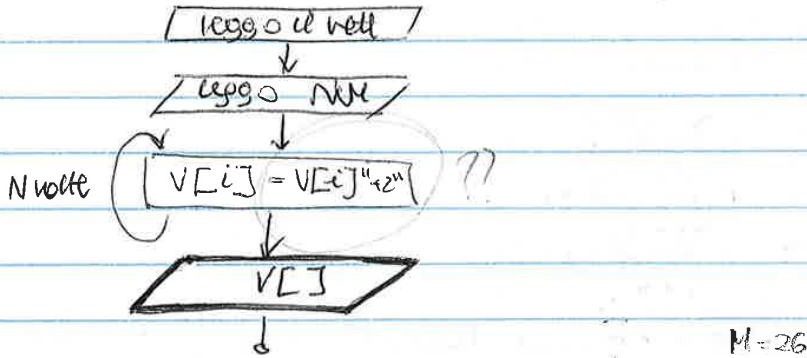 leggo il vett
leggo NUM
N volte
V[i] = V[i]"+2" ??
V[]
M=26